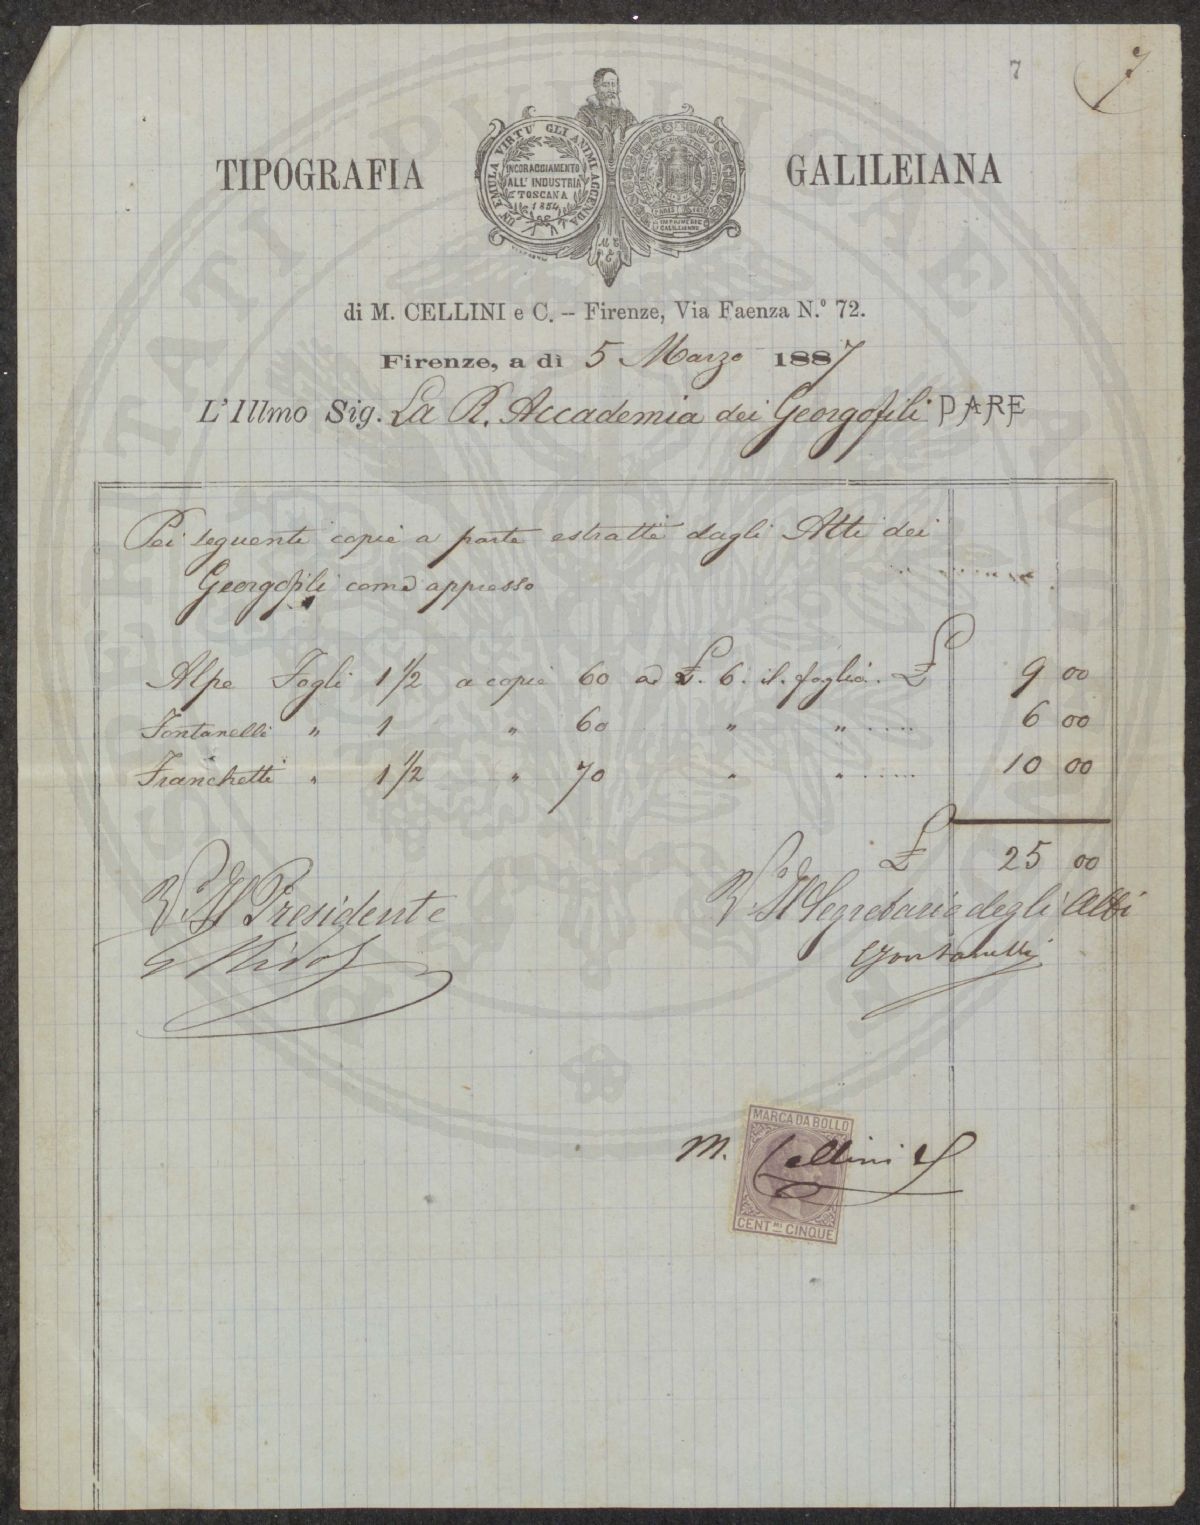 7
7
TIPOGRAFIA GALILEIANA
UN EMULA VIRTU' GLI ANIMI ACCENDA
INCORAGGIAMENTO
ALL' INDUSTRIA
TOSCANA
1854
IMPRIMERIE
GALILEIENNE
di M. CELLINI e C. – Firenze, Via Faenza N.º 72.
Firenze, a dì 5 Marzo 1887
L'Illmo Sig. La R. Accademia dei Georgofili DARE
Pei seguenti copie a parte estratte dagli Atti dei
Georgofili come appresso
Alpe Fogli 1 1/2 a copie 60 a £. 6. il foglio.. £ 9 00
Fontanelli " 1 " 60 " " .... 6 00
Franchetti " 1 1/2 " 70 " " .... 10 00
£ 25 00
V.º Il Presidente
V.º Il Segretario degli Atti
Fontanelli
MARCA DA BOLLO
M. Cellini e C
CENT.MI CINQUE